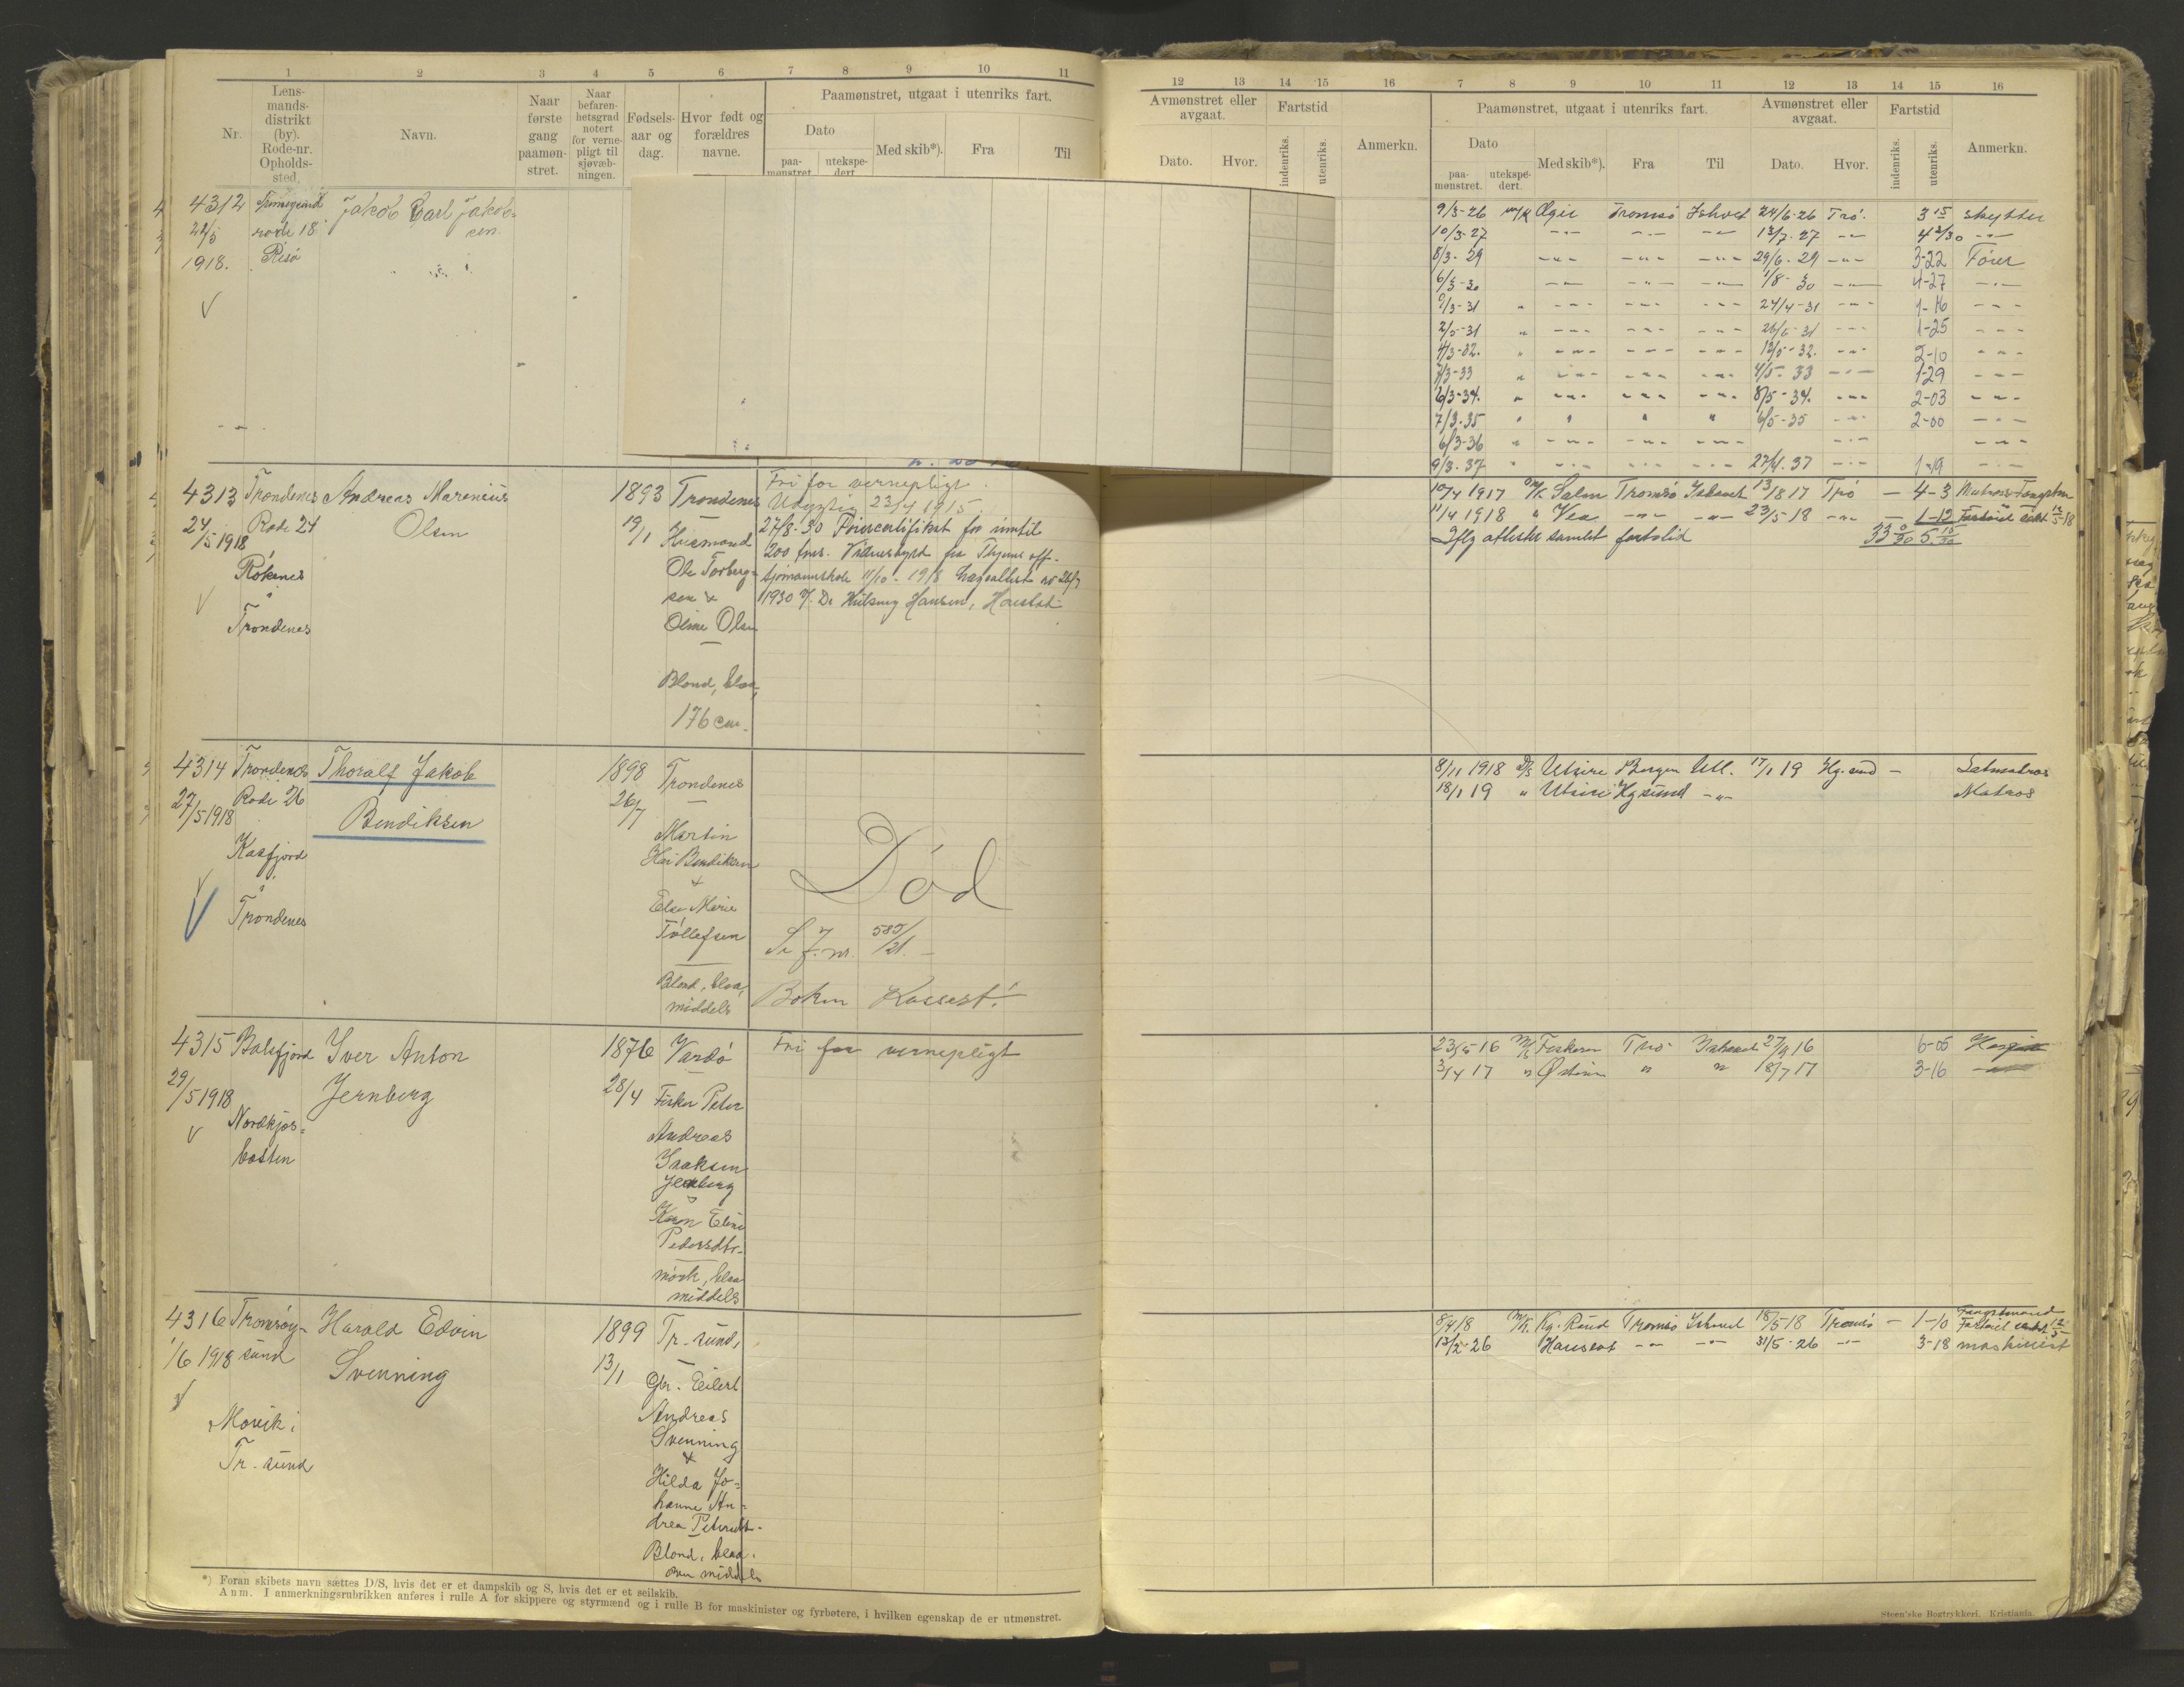 1 2 3 4 5 6 7 8 9 10 11
Nr.
Lens-
mands-
distrikt
(by).
Rode-nr.
Opholds-
sted.
Navn.
Naar
første
gang
paamøn-
stret.
Naar
befaren-
hetsgrad
notert
for verne-
pligt til
sjøvæb-
ningen.
Fødsels-
aar og
dag.
Hvor født og
forældres
navne.
Paamønstret, utgaat i utenriks fart.
Dato
paa-
mønstret
utekspe-
dert.
Med skib*).
Fra
Til
4312
22/5
1918.
rode 18
Risø
Jakob Carl Jakob-
sen.
4313
24/5 1918
Trondenes
Rode 24
Røkenes
i
Trondenes
Andreas Marenius
Olsen
1893
19/1
Trondenes
Husmand
Ole Torberg-
sen &
Oline Olsen
Blond, blaa,
176 cm.
Fri for vernepligt.
Udygtig 22/4 1915.
27/8-30 Førercertifikat for inntil
200 tons. Vidnesbyrd fra Thjømø off.
sjømannskole 11/10-1918
1930
4314
27/5 1918
Trondenes
Rode 26
Kasfjord
i
Trondenes
Thoralf Jakob
Bendiksen
1898
26/7
Trondenes
Martin
Bendiksen
&
Else Marie
Tollefsen
Blond, blaa,
middels
Død
Se J.nr. 585/21.
Boken Kassert!
4315
29/5 1918
Balsfjord
Nordkjos-
botten
Iver Anton
Jernberg
1876
28/4
Vardø
Fisker Peter
Andreas
Isaksen
Jernberg
&
Karen Eline
Pedersdtr.
mørk, blaa
middels
Fri for vernepligt
4316
1/6 1918
Tromsøy-
sund
Movik i
Tr.sund
Harald Edvin
Svenning
1899
13/1
Tr.sund,
Gbr. Eilert
Andreas
Svenning
&
Hilda Jo-
hanne An-
drea Petersdtr.
Blond, blaa.
over middels
*) Foran skibets navn sættes D/S, hvis det er et dampskib og S, hvis det er et seilskib.
Anm. I anmerkningsrubrikken anføres i rulle A for skippere og styrmænd og i rulle B for maskinister og fyrbøtere, i hvilken egenskap de er utmønstret.
12 13 14 15 16 7 8 9 10 11 12 13 14 15 16
Avmønstret eller
avgaat.
Dato. Hvor.
Fartstid
indenriks.
utenriks.
Anmerkn.
Paamønstret, utgaat i utenriks fart.
Dato
paa-
mønstret.
utekspe-
dert.
Med skib*).
Fra
Til
Avmønstret eller
avgaat.
Dato. Hvor.
Fartstid
indenriks.
utenriks.
Anmerkn.
9/3-26 M/K Ægir Tromsø Ishavet 24/6-26 Trø. 3 15 skytter
10/3-27 -"- -"- -"- 12/7-27 -"- 4 2/30 -"-
8/3-29 -"- -"- -"- 29/6-29 -"- 3-22 Fører
6/3-30 -"- -"- -"- 1/8-30 -"- 4-27 -"-
9/3-31 " -"- -"- -"- 24/4-31 -"- 1-16 -"-
2/5-31 " -"- -"- -"- 26/6-31 -"- 1-25 -"-
4/3-32. " -"- -"- -"- 13/5-32. -"- 2-10 -"-
7/3-33 " -"- -"- -"- 4/5-33 -"- 1-29 -"-
6/3-34. " -"- -"- -"- 8/5-34. -"- 2-03 -"-
7/3.35 " " " " 6/5-35 -"- 2-00 -"-
6/3-36 " -"- -"- -"- -"- -"-
9/3.37 " -"- -"- -"- 27/4.37 -"- 1-19 -"-
10/4 1917 M/K Salm Tromsø Ishavet 13/8 17 Trø - 4-3 Matros Fangstm
11/4 1918 " Vea -"- -"- 23/5 18 -"- - 1-12
Iflg attester samlet fartstid
8/11 1918 D/S Utsire Bergen Utl. 17/1 19 Hg.sund - Letmatros
18/1 19 " Utsire Hg sund -"- Matros
23/5 16 M/K Fiskeren Trø Ishavet 27/9 16 6-05
3/4 17 " " " 18/7 17 3-16
8/4 18 M/K. Kg. Raud Tromsø Ishavet 18/5-18 Tromsø - 1-10 Fangstmand
13/2-26 Hanseat -"- -"- 31/5-26 -"- 3-18 maskinist
Steen'ske Bogtrykkeri. Kristiania.